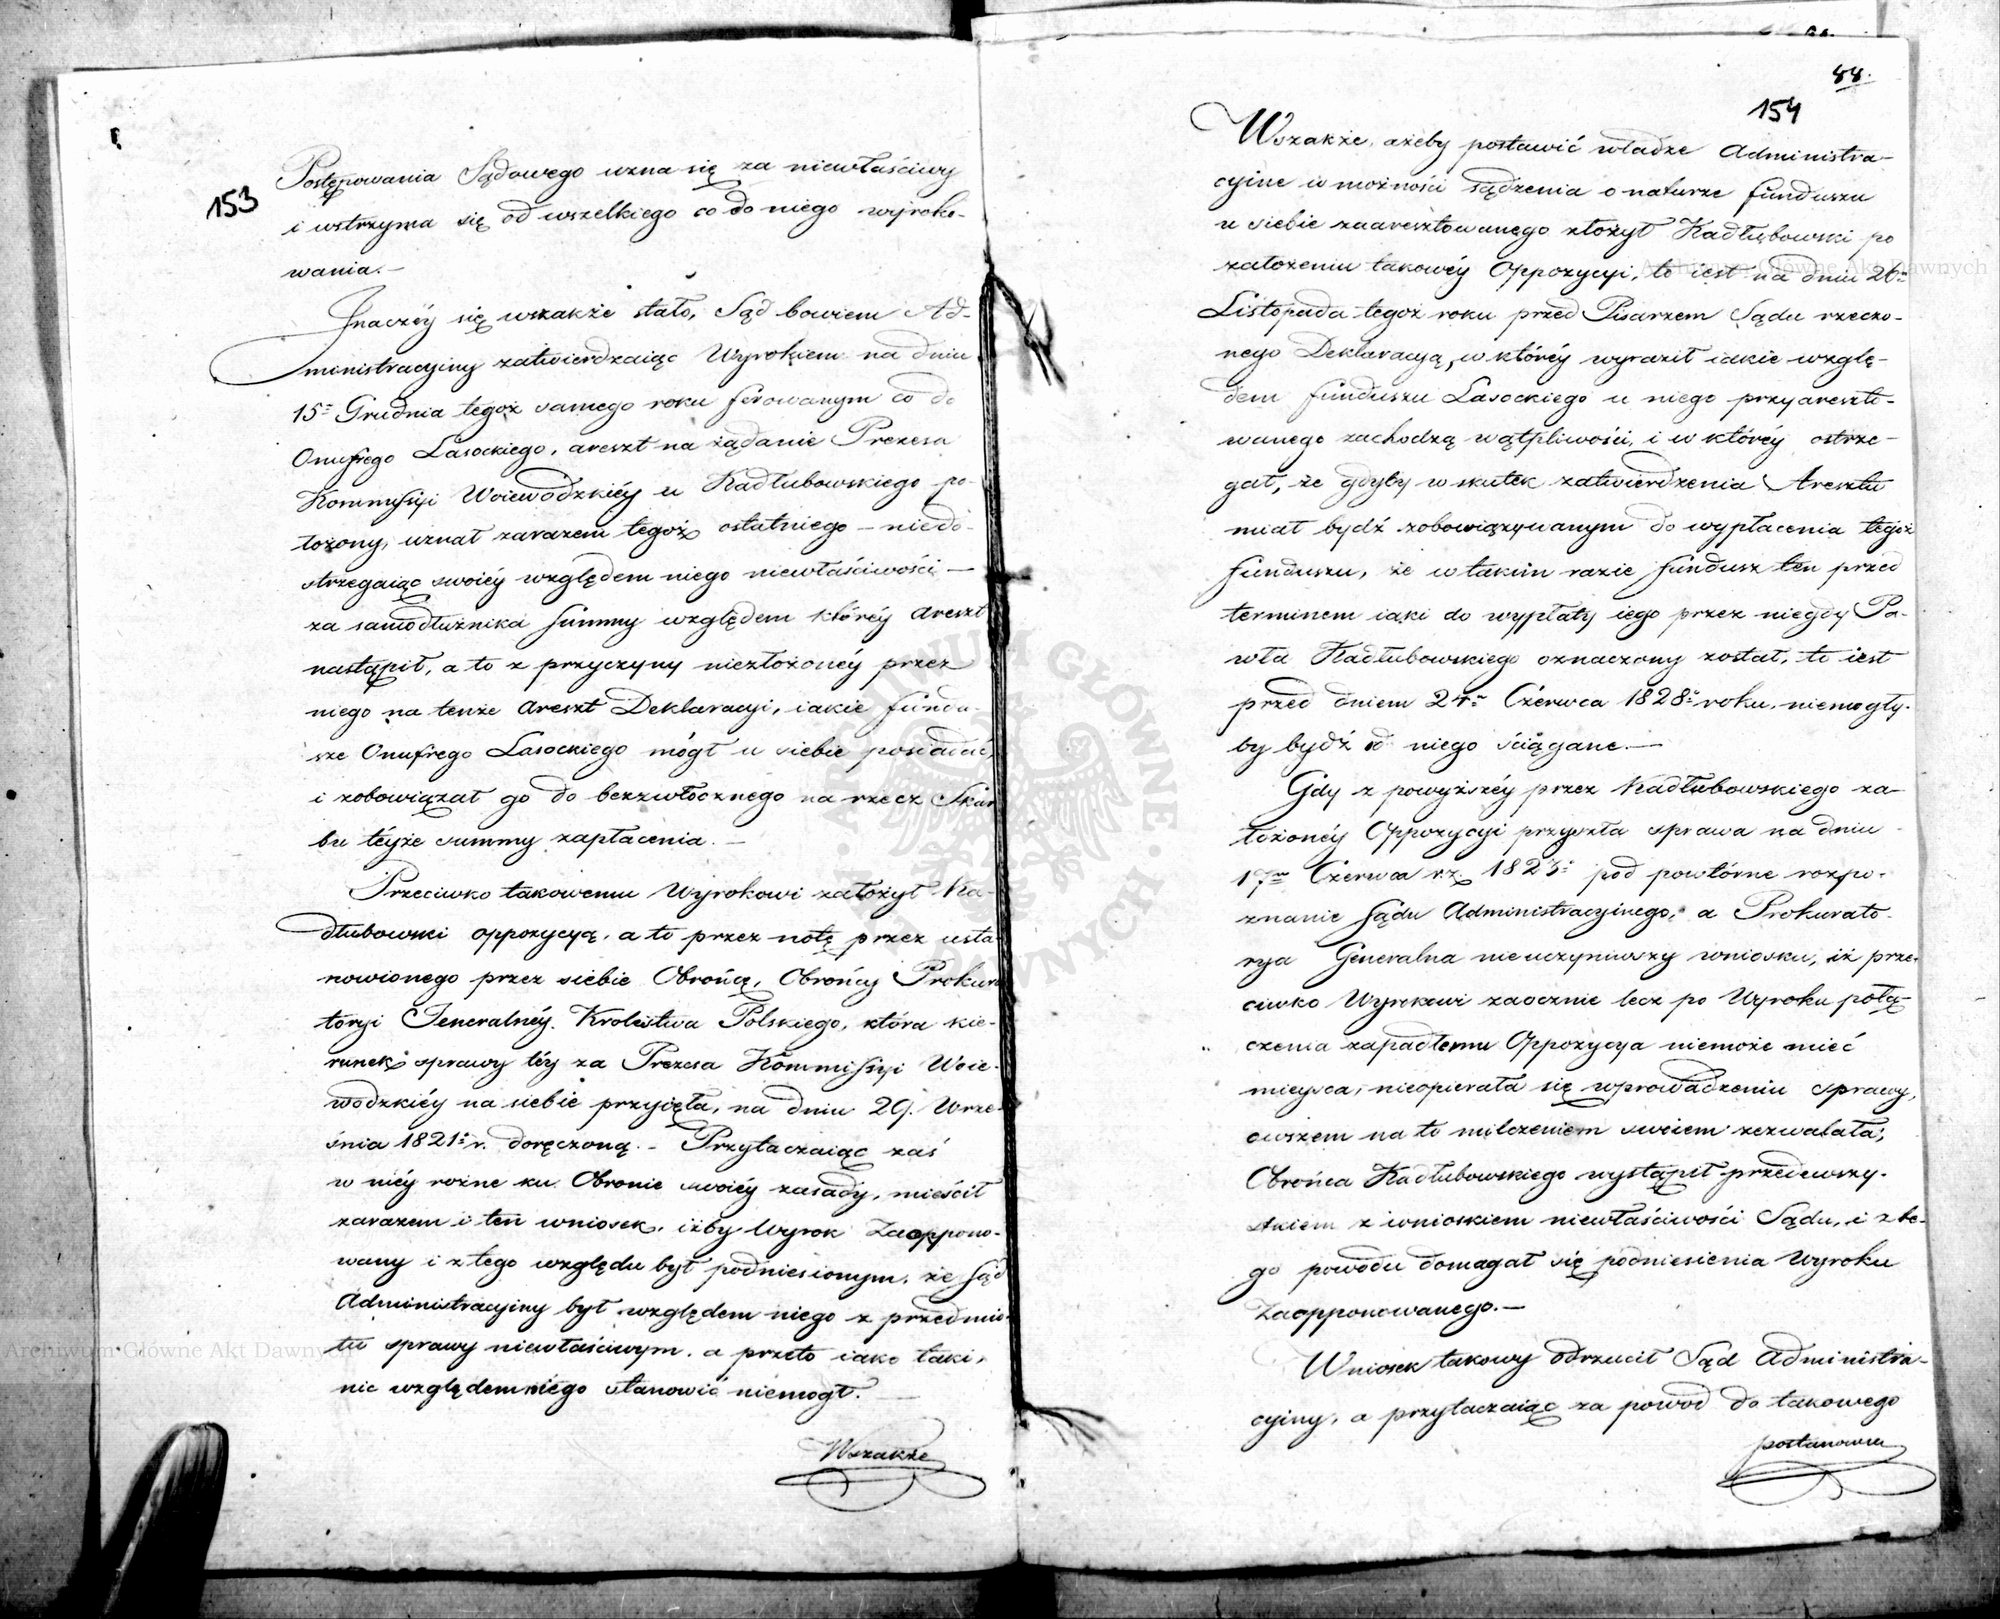 153
Postępowania Sądowego uzna się za niewłaściwy
i wstrzyma się od wszelkiego co do niego wyroko-
wania. —
Jnaczéy się wszakże stało, Sąd bowiem Ad-
ministracyiny zatwierdzaiąc Wyrokiem na dniu
15= Grudnia tegoż samego roku ferowanym co do
Onufrego Lasockiego, areszt na żądanie Prezesa
Kommissyi Woiewodzkiéy u Kadłubowskiego po-
łożony, uznał zarazem tegoż ostatniego — niedo-
strzegaiąc swoiéy względem niego niewłaściwości —
za samodłużnika Summy względem któréy areszt
nastąpił, a to z przyczyny niezłożonéy przez
niego na tenże areszt Deklaracyi, iakie fundu-
sze Onufrego Lasockiego mógł u siebie posiadać,
i zobowiązał go do bezzwłocznego na rzecz Skar
bu téyże summy zapłacenia. —
Przeciwko takowemu Wyrokowi założył Ka-
dłubowski oppozycyą, a to przez notę przez usta-
nowionego przez siebie Obrońcę, Obrońcy Prokura
toryi Jeneralnéy Krolestwa Polskiego, która kie-
runek sprawy téy za Prezesa Kommissyi Woie-
wodzkiéy na siebie przyięła, na dniu 29. Wrze-
śnia 1821= r. doręczoną. — Przytaczaiąc zaś
w niéy rożne ku Obronie swoiéy zasady, mieścił
zarazem i ten wniosek, iżby Wyrok Zaoppono-
wany i z tego względu był podniesionym, że Sąd
Administracyiny był względem niego z przedmio-
tu sprawy niewłaściwym, a przeto iako taki,
nic względem niego stanowić niemogł. —
Wszakże
88.
154
Wszakże, ażeby postawić władze Administra-
cyine w możności sądzenia o naturze funduszu
u siebie zaaresztowanego złożył Kadłubowski po
założeniu takowéy Oppozycyi, to iest na dniu 26=
Listopada tegoż roku przed Pisarzem Sądu rzeczo-
nego Deklaracyą, w któréy wyraził iakie wzglę-
dem funduszu Lasockiego u niego przyareszto-
wanego zachodzą wątpliwości, i w któréy ostrze-
gał, że gdyby w skutek zatwierdzenia Aresztu
miał bydź zobowiązywanym do wypłacenia tegoż
funduszu, że w takim razie fundusz ten przed
terminem iaki do wypłaty iego przez niegdy Pa-
wła Kadłubowskiego oznaczony został, to iest
przed dniem 24= Czerwca 1828= roku, niemogły-
by bydź od niego ściągane. —
Gdy z powyższéy przez Kadłubowskiego za-
łożonéy Oppozycyi przyszła sprawa na dniu
17= Czerwca rz. 1823= pod powtórne rozpo-
znanie Sądu Administracyinego, a Prokurato-
rya Generalna nieuczyniwszy wniosku, iż prze-
ciwko Wyrokowi zaocznie lecz po Wyroku połą-
czenia zapadłemu Oppozycya niemoże mieć
mieysca, nieopierała się wprowadzeniu sprawy,
owszem na to milczeniem swoiem zezwalała;
Obrońca Kadłubowskiego wystąpił przedewszy-
stkiem z wnioskiem niewłaściwości Sądu, i z te-
go powodu domagał się podniesienia Wyroku
Zaopponowanego. —
Wniosek takowy odrzucił Sąd Administra-
cyiny, a przytaczaiąc za powod do takowego
postanowie
Archiwum Główne Akt Dawnych
Archiwum Główne Akt Dawnych
ARCHIWUM GŁÓWNE AKT DAWNYCH